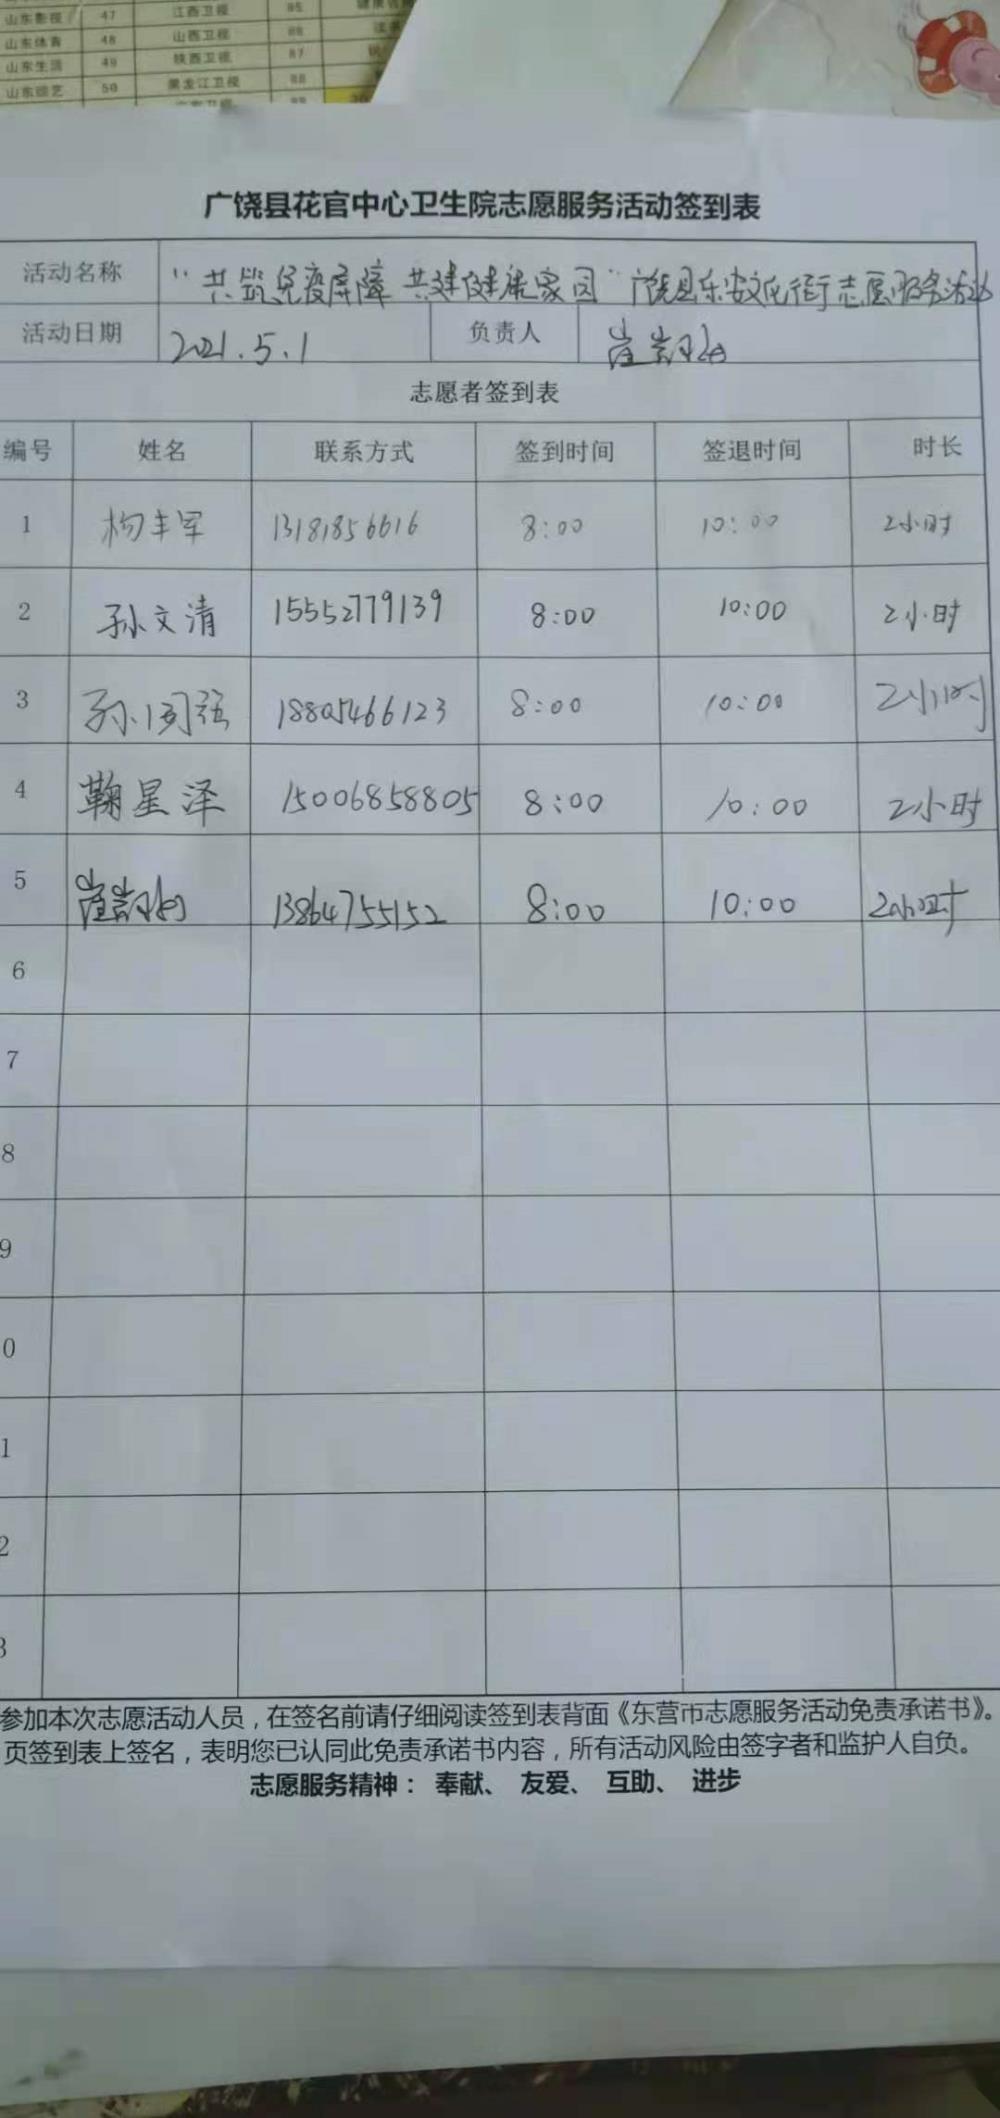 山东影视 47 江西卫视 85
山东体育 48 山西卫视 86
山东生活 49 陕西卫视 87
山东综艺 50 黑龙江卫视 88
广饶县花官中心卫生院志愿服务活动签到表
活动名称 "共筑免疫屏障 共建健康家园"广饶县乐安文化街志愿服务活动
活动日期 2021.5.1 负责人 崔
志愿者签到表
编号 姓名 联系方式 签到时间 签退时间 时长
1 杨丰军 13181856616 8:00 10:00 2小时
2 孙文清 15552779139 8:00 10:00 2小时
3 孙国强 18805466123 8:00 10:00 2小时
4 鞠星泽 15006858805 8:00 10:00 2小时
5 崔 13864755152 8:00 10:00 2小时
6
7
8
9
0
1
2
3
参加本次志愿活动人员，在签名前请仔细阅读签到表背面《东营市志愿服务活动免责承诺书》。
页签到表上签名，表明您已认同此免责承诺书内容，所有活动风险由签字者和监护人自负。
志愿服务精神： 奉献、 友爱、 互助、 进步